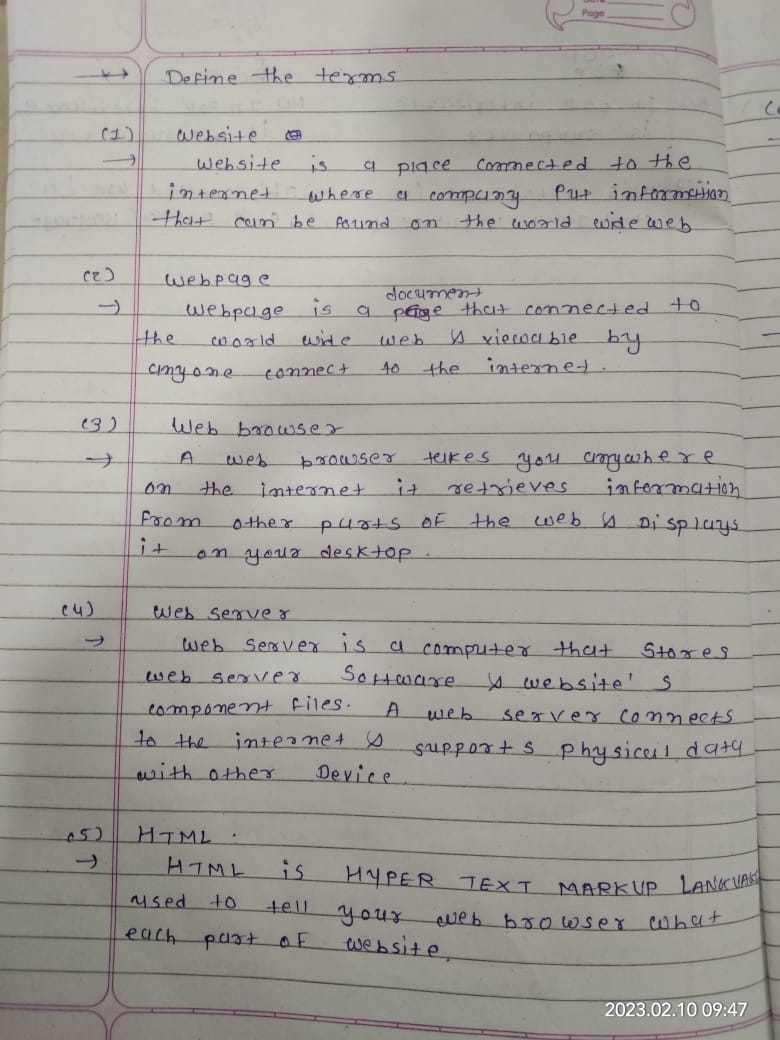 Page
Define the terms
(1) Website
→ Website is a place connected to the
internet where a company Put information
that can be found on the world wide web
(2) Webpage
document
→ Webpage is a that connected to
the world wide web & viewable by
anyone connect to the internet.
(3) Web browser
→ A web browser takes you anywhere
on the internet it retrieves information
From other parts of the web & Displays
it on your desktop.
(4) Web server
→ Web server is a computer that Stores
web server Software & website's
component files. A web server connects
to the internet & supports physical data
with other Device
(5) HTML.
→ HTML is HYPER TEXT MARKUP LANKUAGE
used to tell your web browser what
each part of website.
2023.02.10 09:47